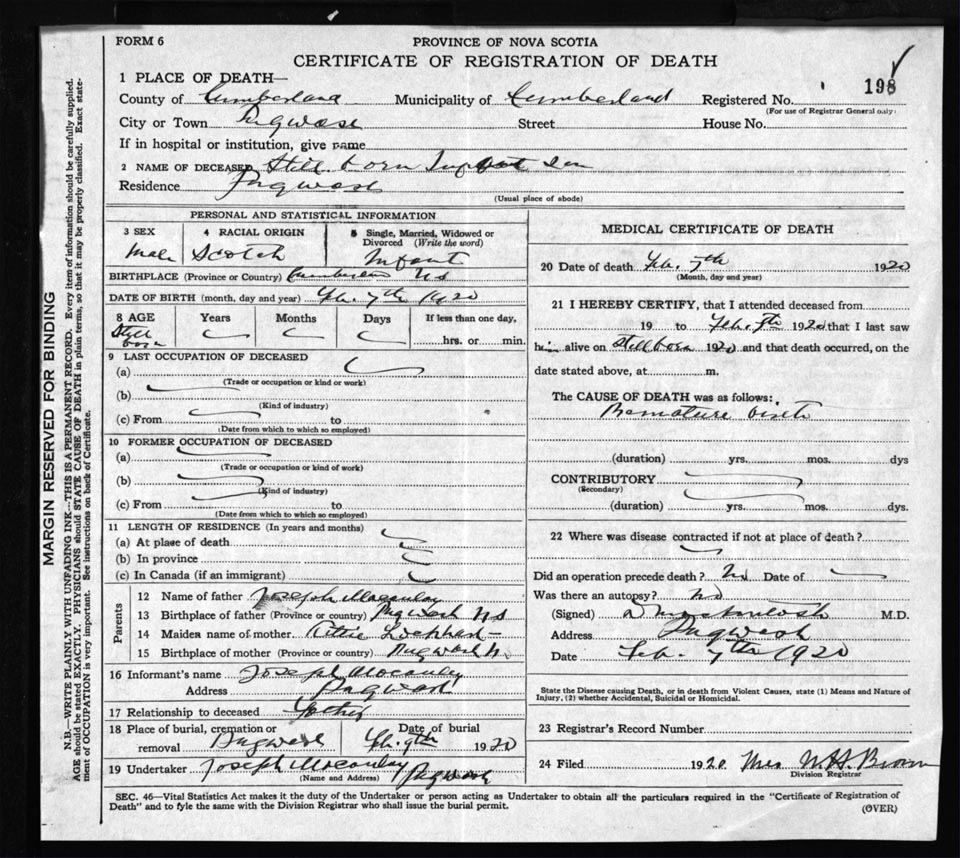 FORM 6
PROVINCE OF NOVA SCOTIA
CERTIFICATE OF REGISTRATION OF DEATH
1 PLACE OF DEATH—
County of Cumberland Municipality of Cumberland Registered No. 198
(For use of Registrar General only)
City or Town Pugwash Street House No.
If in hospital or institution, give name
2 NAME OF DECEASED Still born Infant Son
Residence Pugwash
(Usual place of abode)
PERSONAL AND STATISTICAL INFORMATION
3 SEX 4 RACIAL ORIGIN 5 Single, Married, Widowed or Divorced (Write the word)
Male Scotch Infant
BIRTHPLACE (Province or Country) Cumberland N S
DATE OF BIRTH (month, day and year) Feb. 7th 1920
8 AGE Years Months Days If less than one day,
Still born hrs. or min.
9 LAST OCCUPATION OF DECEASED
(a)
(Trade or occupation or kind or work)
(b)
(Kind of industry)
(c) From to
(Date from which to which so employed)
10 FORMER OCCUPATION OF DECEASED
(a)
(Trade or occupation or kind of work)
(b)
(Kind of industry)
(c) From to
(Date from which to which so employed)
11 LENGTH OF RESIDENCE (In years and months)
(a) At place of death
(b) In province
(c) In Canada (if an immigrant)
Parents
12 Name of father Joseph Macaulay
13 Birthplace of father (Province or country) Pugwash N S
14 Maiden name of mother Lockhart
15 Birthplace of mother (Province or country) Pugwash N.
16 Informant's name Joseph Macaulay
Address Pugwash
17 Relationship to deceased Father
18 Place of burial, cremation or removal Pugwash Date of burial Feb. 9th 1920
19 Undertaker Joseph Macaulay Pugwash
(Name and Address)
MEDICAL CERTIFICATE OF DEATH
20 Date of death Feb. 7th 1920
(Month, day and year)
21 I HEREBY CERTIFY, that I attended deceased from
19 to Feb. 7th 1920 that I last saw
him alive on Still born 1920 and that death occurred, on the
date stated above, at m.
The CAUSE OF DEATH was as follows:
Premature birth
(duration) yrs. mos. dys
CONTRIBUTORY
(Secondary)
(duration) yrs. mos. dys.
22 Where was disease contracted if not at place of death?
Did an operation precede death? No Date of
Was there an autopsy? No
(Signed) Mackintosh M.D.
Address Pugwash
Date Feb. 7th 1920
State the Disease causing Death, or in death from Violent Causes, state (1) Means and Nature of
Injury, (2) whether Accidental, Suicidal or Homicidal.
23 Registrar's Record Number
24 Filed 1920 Mrs W H Brown
Division Registrar
SEC. 46—Vital Statistics Act makes it the duty of the Undertaker or person acting as Undertaker to obtain all the particulars required in the "Certificate of Registration of
Death" and to fyle the same with the Division Registrar who shall issue the burial permit.
(OVER)
MARGIN RESERVED FOR BINDING
N.B.—WRITE PLAINLY WITH UNFADING INK—THIS IS A PERMANENT RECORD. Every item of information should be carefully supplied.
AGE should be stated EXACTLY. PHYSICIANS should STATE CAUSE OF DEATH in plain terms, so that it may be properly classified. Exact state-
ment of OCCUPATION is very important. See instructions on back of Certificate.